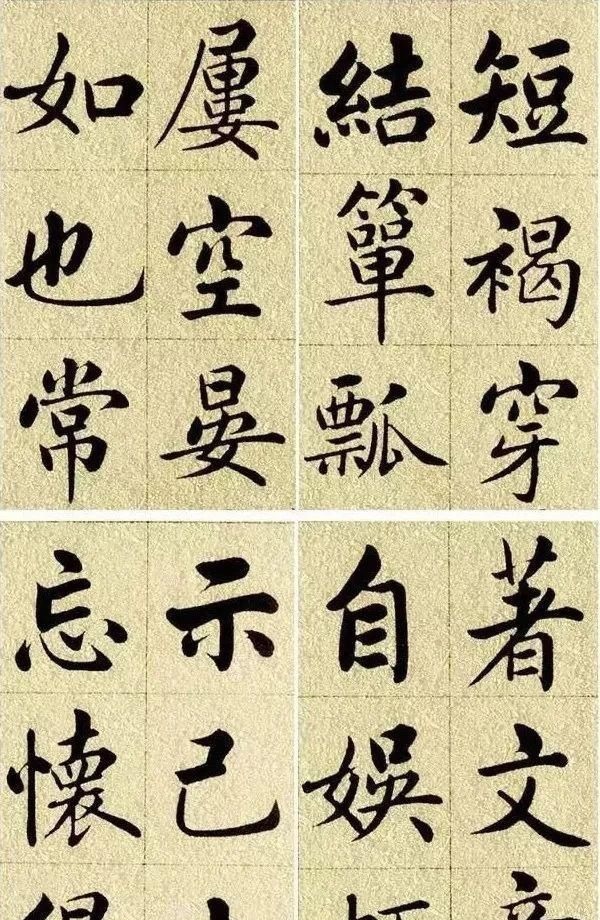 短褐穿
結簞瓢
屢空晏
如也常
著文
自娛
示己
忘懷